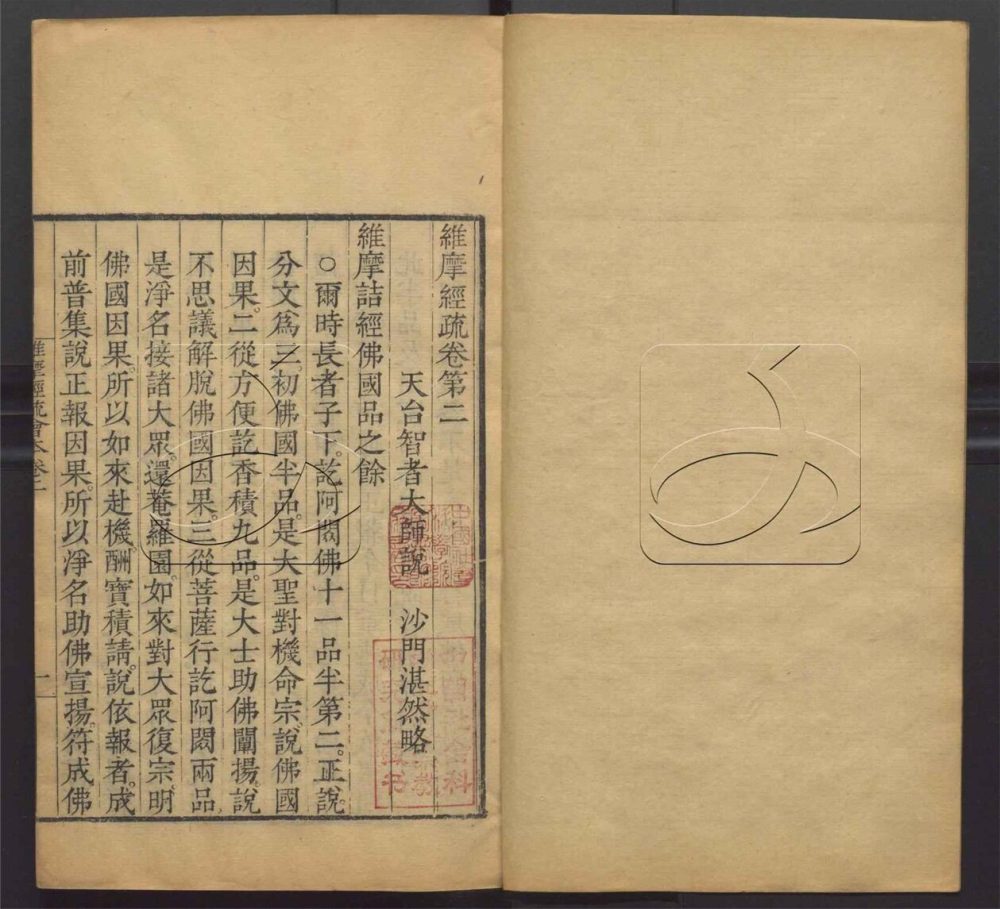 維摩經疏卷第二
天台智者大師說　沙門湛然略
維摩詰經佛國品之餘
○爾時長者子下。訖阿閦佛十一品半第二。正說。
分文爲三。初佛國半品。是大聖對機命宗。說佛國
因果。二從方便訖香積九品。是大士助佛闡揚。說
不思議解脫佛國因果。三從菩薩行訖阿閦兩品
是淨名接諸大眾。還菴羅園。如來對大眾復宗。明
佛國因果。所以如來赴機。酬寶積請。說依報者。成
前普集說正報因果。所以淨名助佛宣揚。符成佛
維摩經疏會本卷二
一